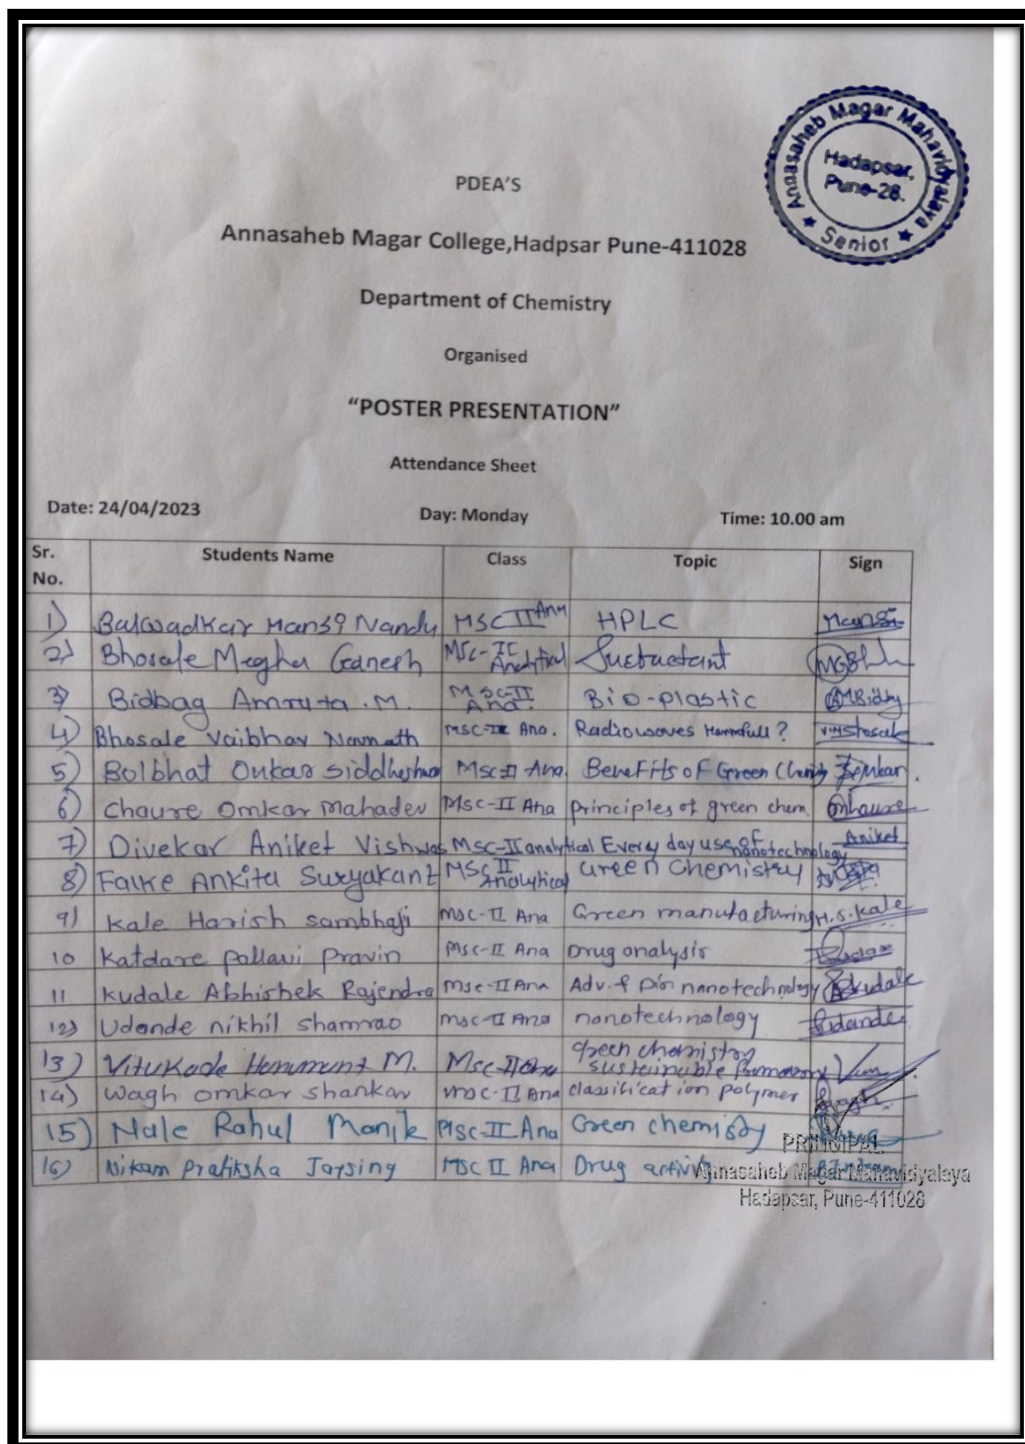 Annasaheb Magar Mahavidyalaya
Hadapsar,
Pune-28.
★ Senior ★
PDEA'S
Annasaheb Magar College,Hadpsar Pune-411028
Department of Chemistry
Organised
“POSTER PRESENTATION”
Attendance Sheet
Date: 24/04/2023 Day: Monday Time: 10.00 am
Sr. No. Students Name Class Topic Sign
1) Balwadkar Mansi Nandu MSC II Ana HPLC Mansi
2) Bhosale Megha Ganesh MSc-II Analytical
3) Bidbag Amruta .M. MSc-II Ana. Bio-plastic
4) Bhosale Vaibhav Navnath MSC-II Ana. Radiowaves Harmfull?
5) Bolbhat Onkar Siddheshwar Msc-II Ana Benefits of Green
6) Chaure Omkar Mahadev Msc-II Ana principles of green chem.
7) Divekar Aniket Vishwas Msc-II analytical Every day use of nanotechnology Aniket
8) Falke Ankita Suryakant MSc II Analytical Green Chemistry
9) Kale Harish Sambhaji Msc-II Ana Green manufacturing H.S.Kale
10 Katdare pallavi pravin Msc-II Ana Drug analysis
11 Kudale Abhishek Rajendra Msc-II Ana Adv. nanotechnology Kudale
12) Udande nikhil shamrao msc-II Ana nanotechnology Udande
13) Vitukade M. Msc-II Ana green chemistry sustainable
14) Wagh omkar shankar msc-II Ana classification polymer
15) Nale Rahul Manik Msc-II Ana Green chemistry
16) Nikam Pratiksha Jaysing MSC II Ana Drug activity
PRINCIPAL
Annasaheb Magar Mahavidyalaya
Hadapsar, Pune-411028